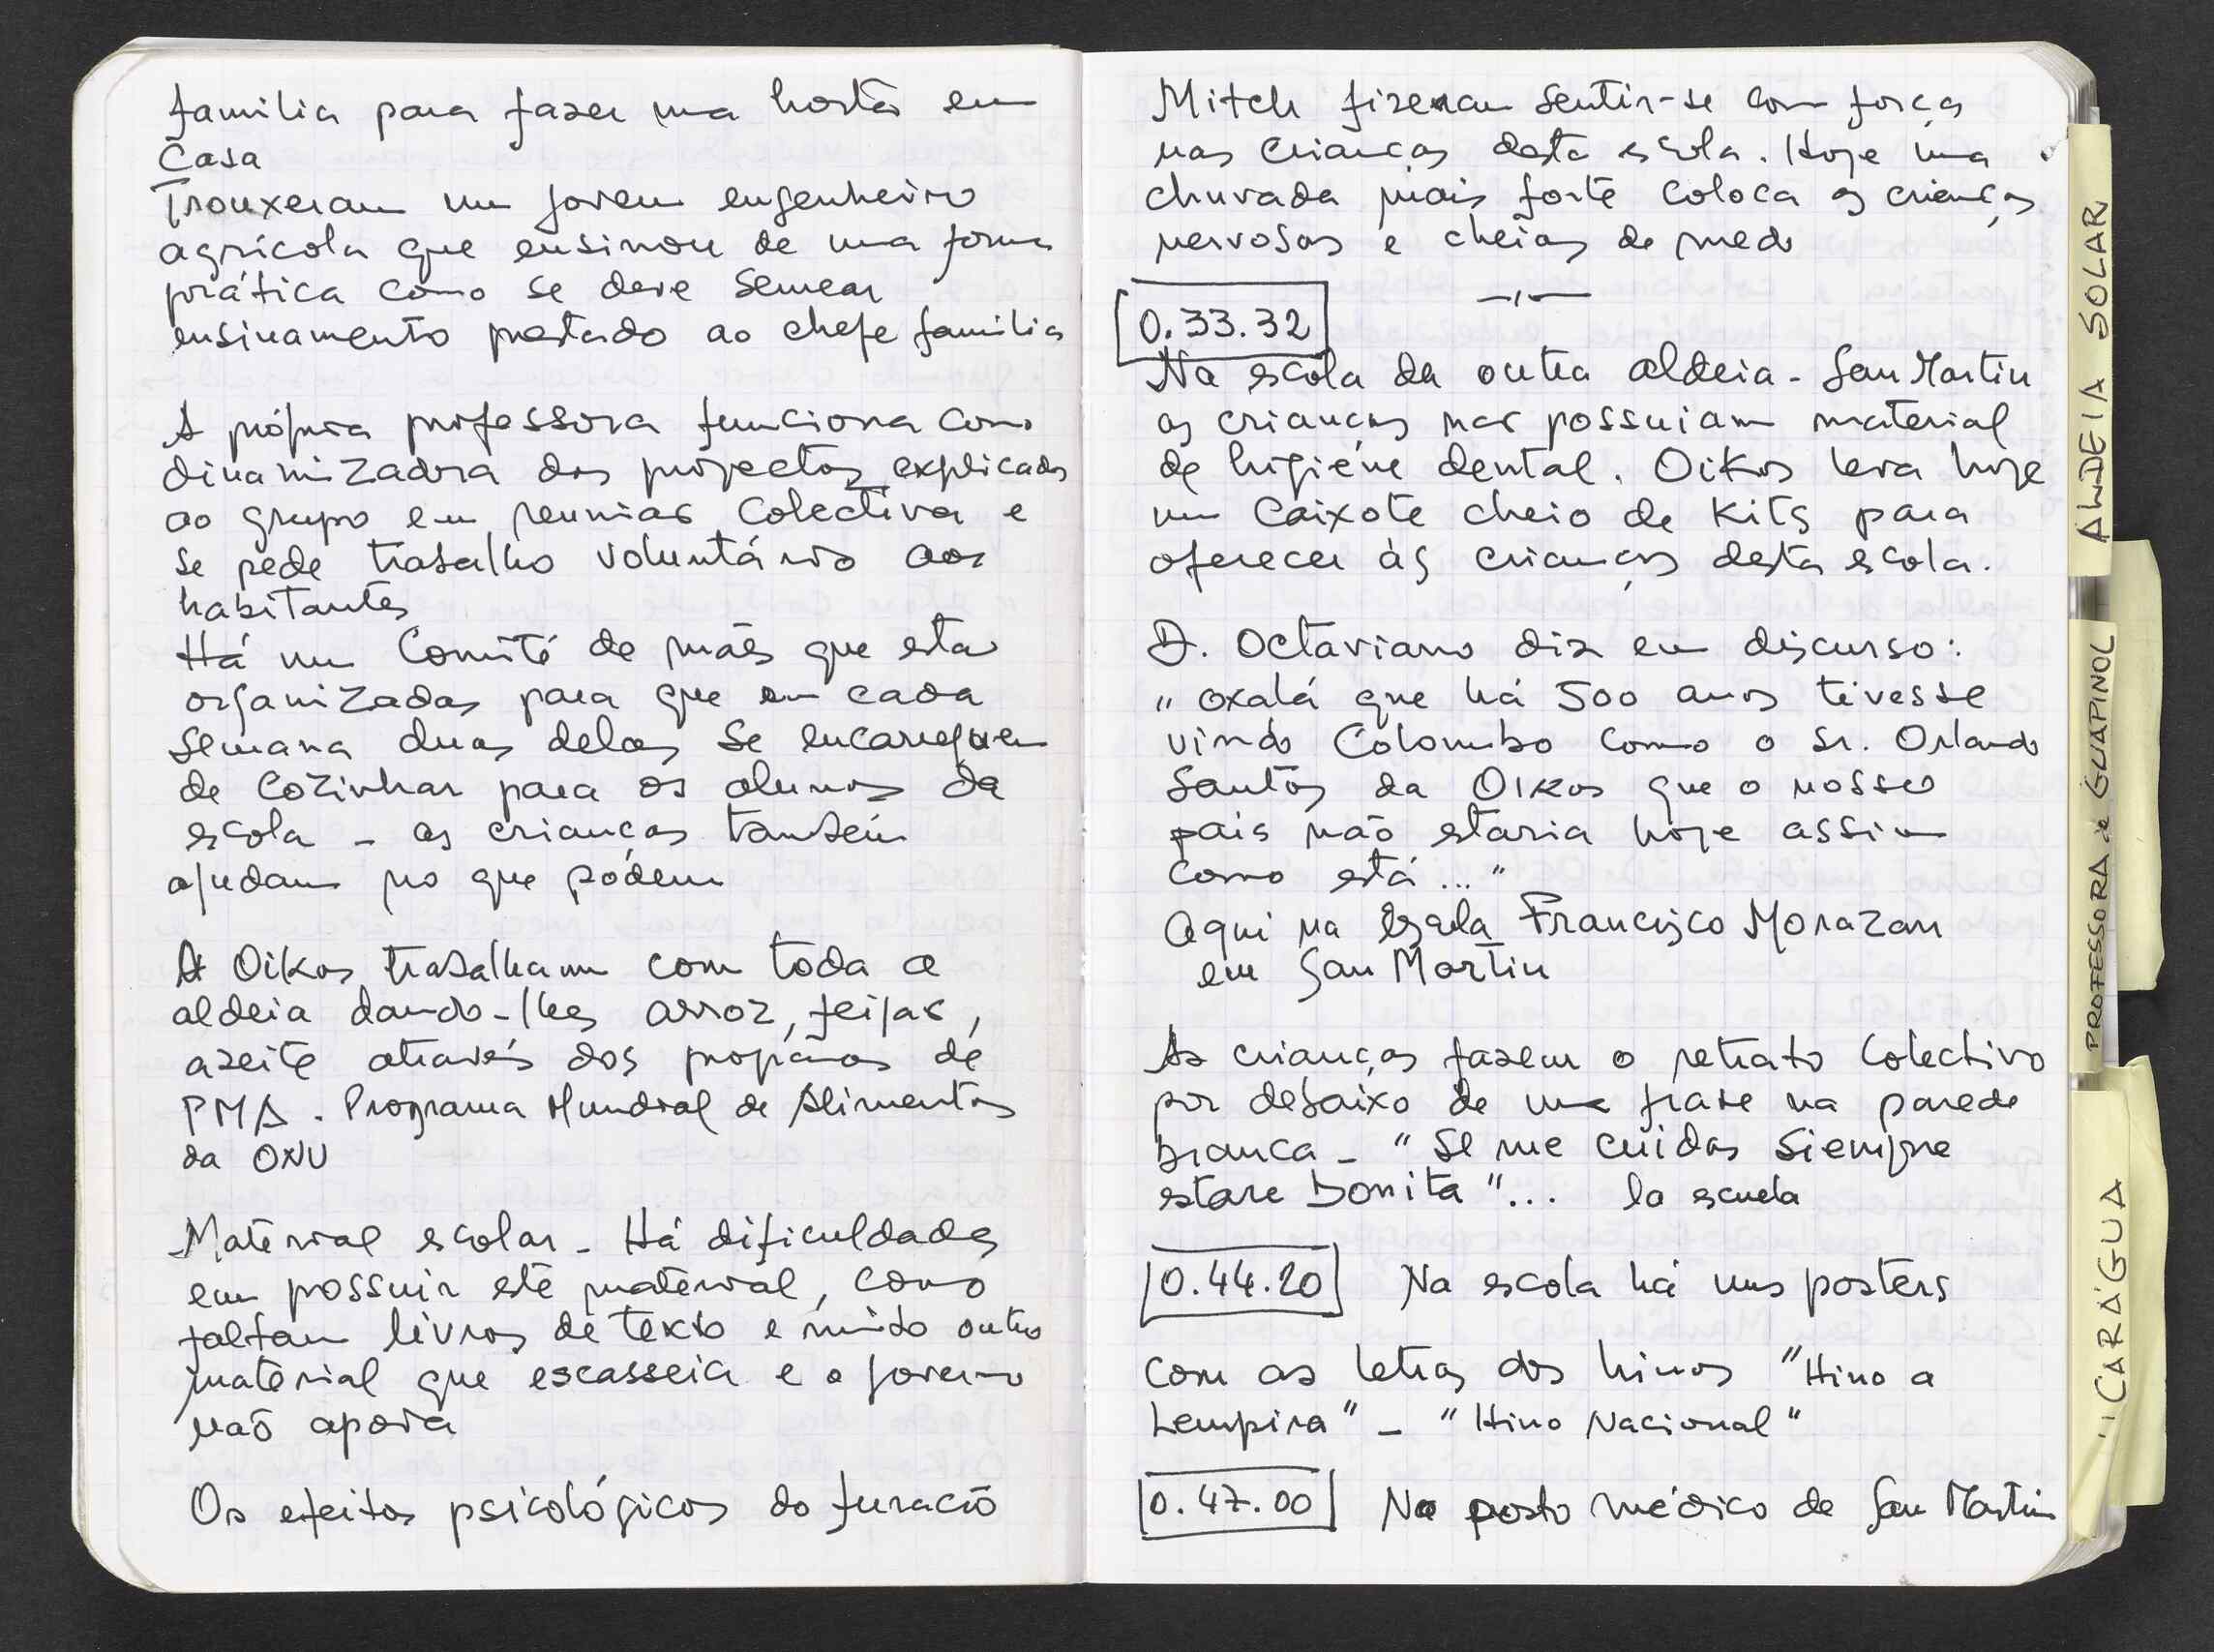 familia para fazer uma horta em
Casa
Trouxeram um jovem engenheiro
agrícola que ensinou de uma forma
prática como se deve semear
ensinamento prestado ao chefe familia
A própria professora funciona como
dinamizadora dos projectos explicados
ao grupo em reunião colectiva e
se pede trabalho voluntário aos
habitantes
Há um Comité de mães que estão
organizadas para que em cada
semana duas delas se encarreguem
de cozinhar para os alunos da
escola - as crianças também
ajudam no que pódem
A Oikos trabalham com toda a
aldeia dando-lhes arroz, feijão,
azeite através dos programas de
PMA. Programa Mundial de Alimentos
da ONU
Material escolar - Há dificuldades
em possuir este material, como
faltam livros de texto e muito outro
material que escasseia e o governo
não apoia
Os efeitos psicológicos do furacão
Mitch fizeram sentir-se com força
nas crianças desta escola. Hoje uma
chuvada mais forte coloca as crianças
nervosas e cheias de medo
0.33.32
Na escola da outra aldeia - San Martin
as crianças não possuiam material
de higiéne dental. Oikos leva hoje
um caixote cheio de Kits para
oferecer às crianças desta escola.
D. Octaviano diz em discurso:
"oxalá que há 500 anos tivesse
vindo Colombo como o Sr. Orlando
Santos da Oikos que o nosso
pais não estaria hoje assim
como está..."
Aqui na Escola Francisco Morazan
em San Martin
As crianças fazem o retrato colectivo
por debaixo de uma frase na parede
branca - "Se me cuidas siempre
estare bonita"... la escuela
0.44.20 Na escola há uns posters
com as letras dos hinos "Hino a
Lempira" - "Hino Nacional"
0.47.00 No posto médico de San Martin
ALDEIA SOLAR
PROFESSORA de GUAPINOL
"CARÁGUA